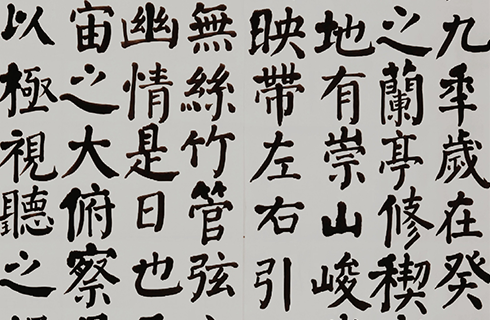 九年歲在癸
之蘭亭修禊
地有崇山峻
映帶左右引
無絲竹管弦
幽情是日也
宙之大俯察
以極視聽之